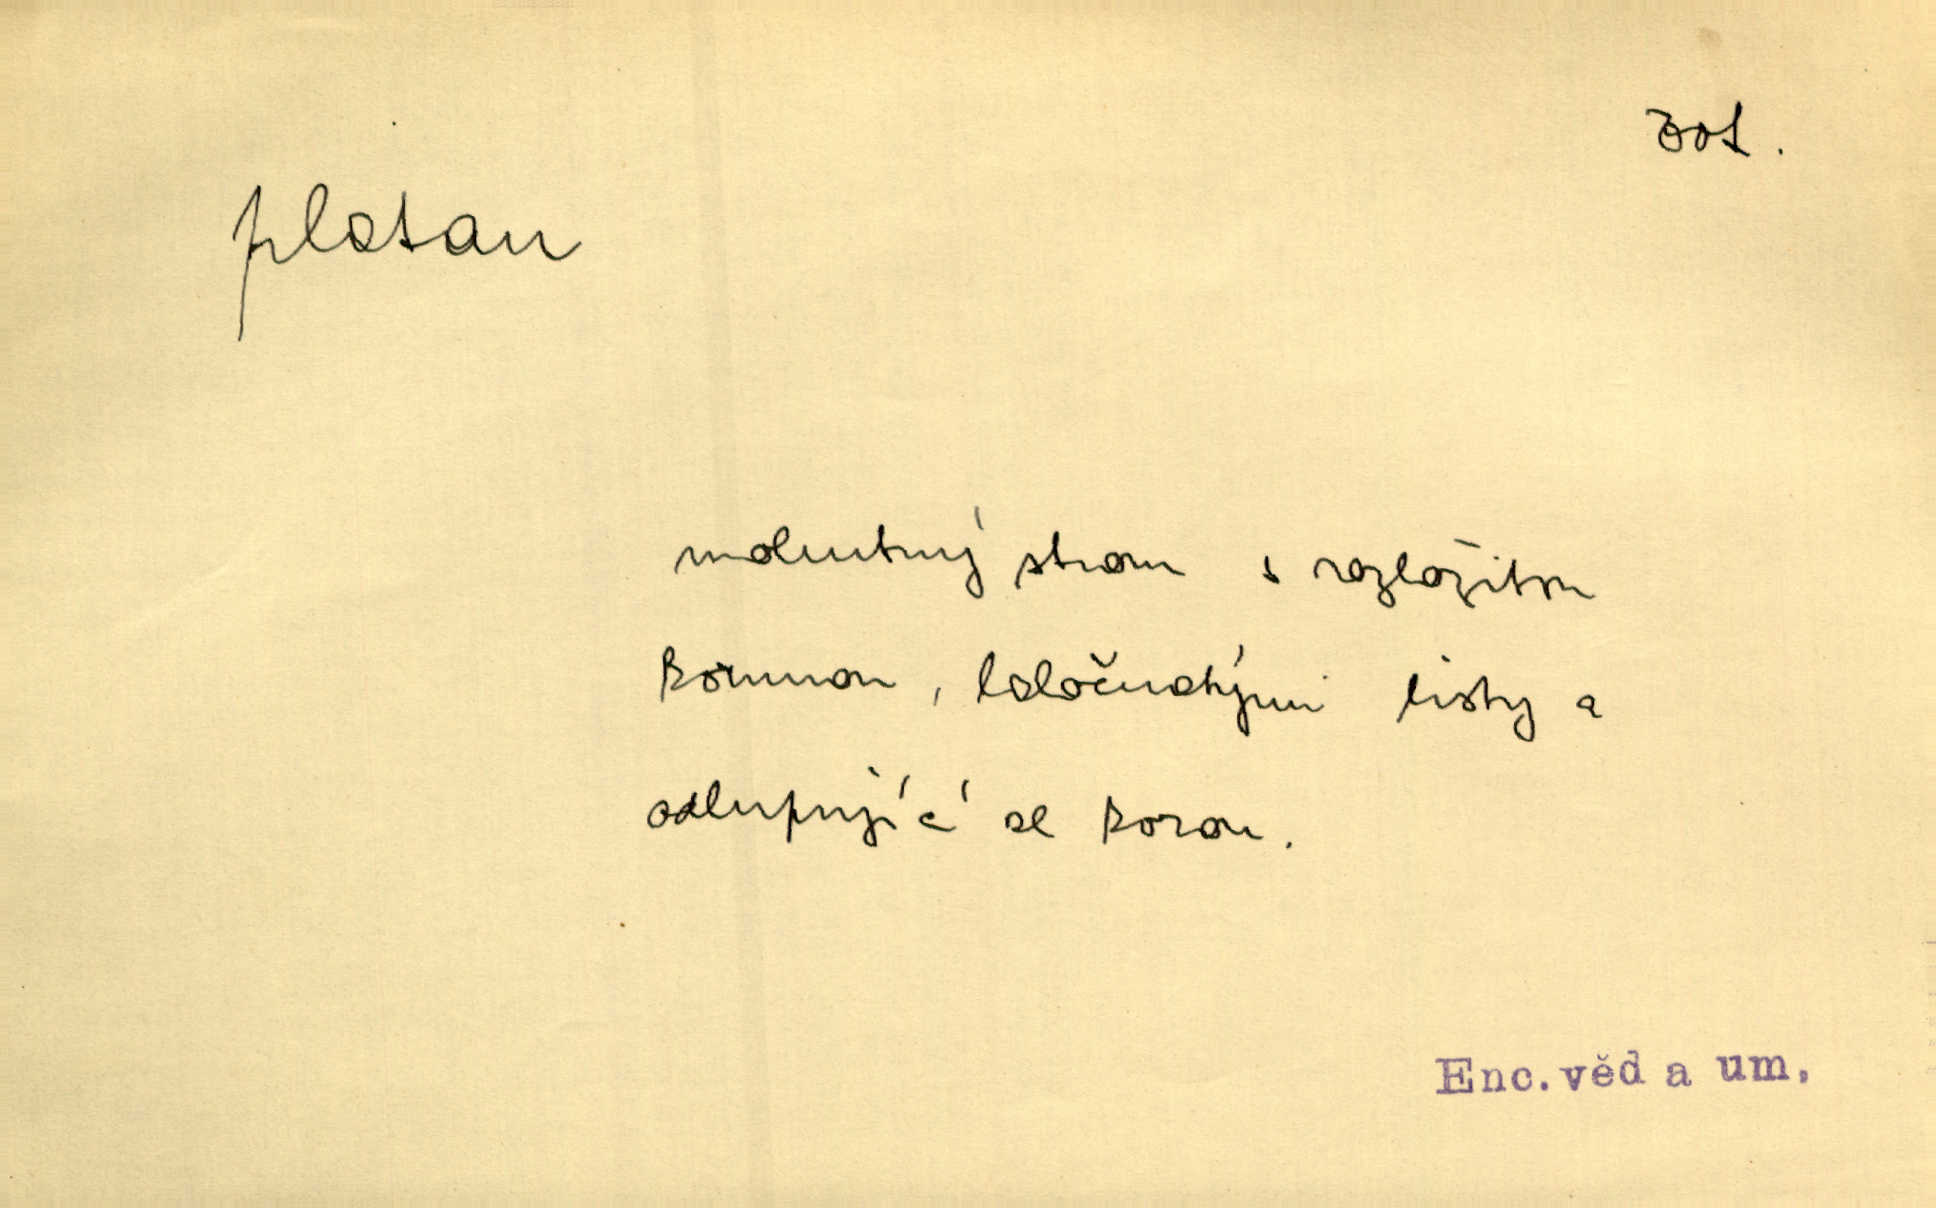 bot.
platan
mohutný strom s rozložitou
korunou, laločnatými listy a
odlupující se korou.
Enc. věd a um.